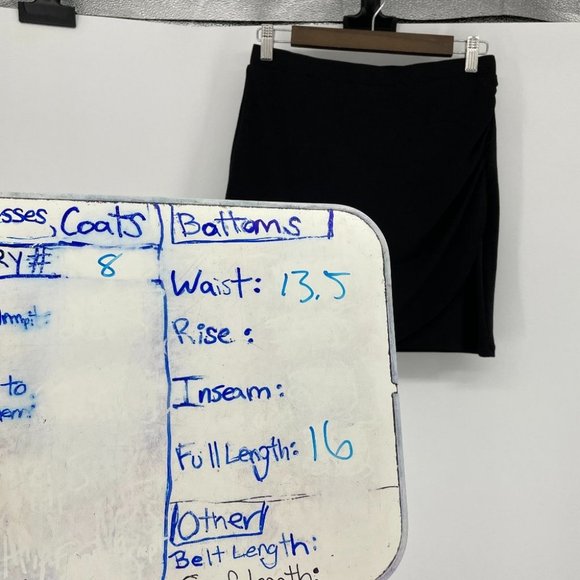 sses, Coats
RY# 8
to
Bottoms
Waist: 13.5
Rise:
Inseam:
Full Length: 16
Other
Belt Length: